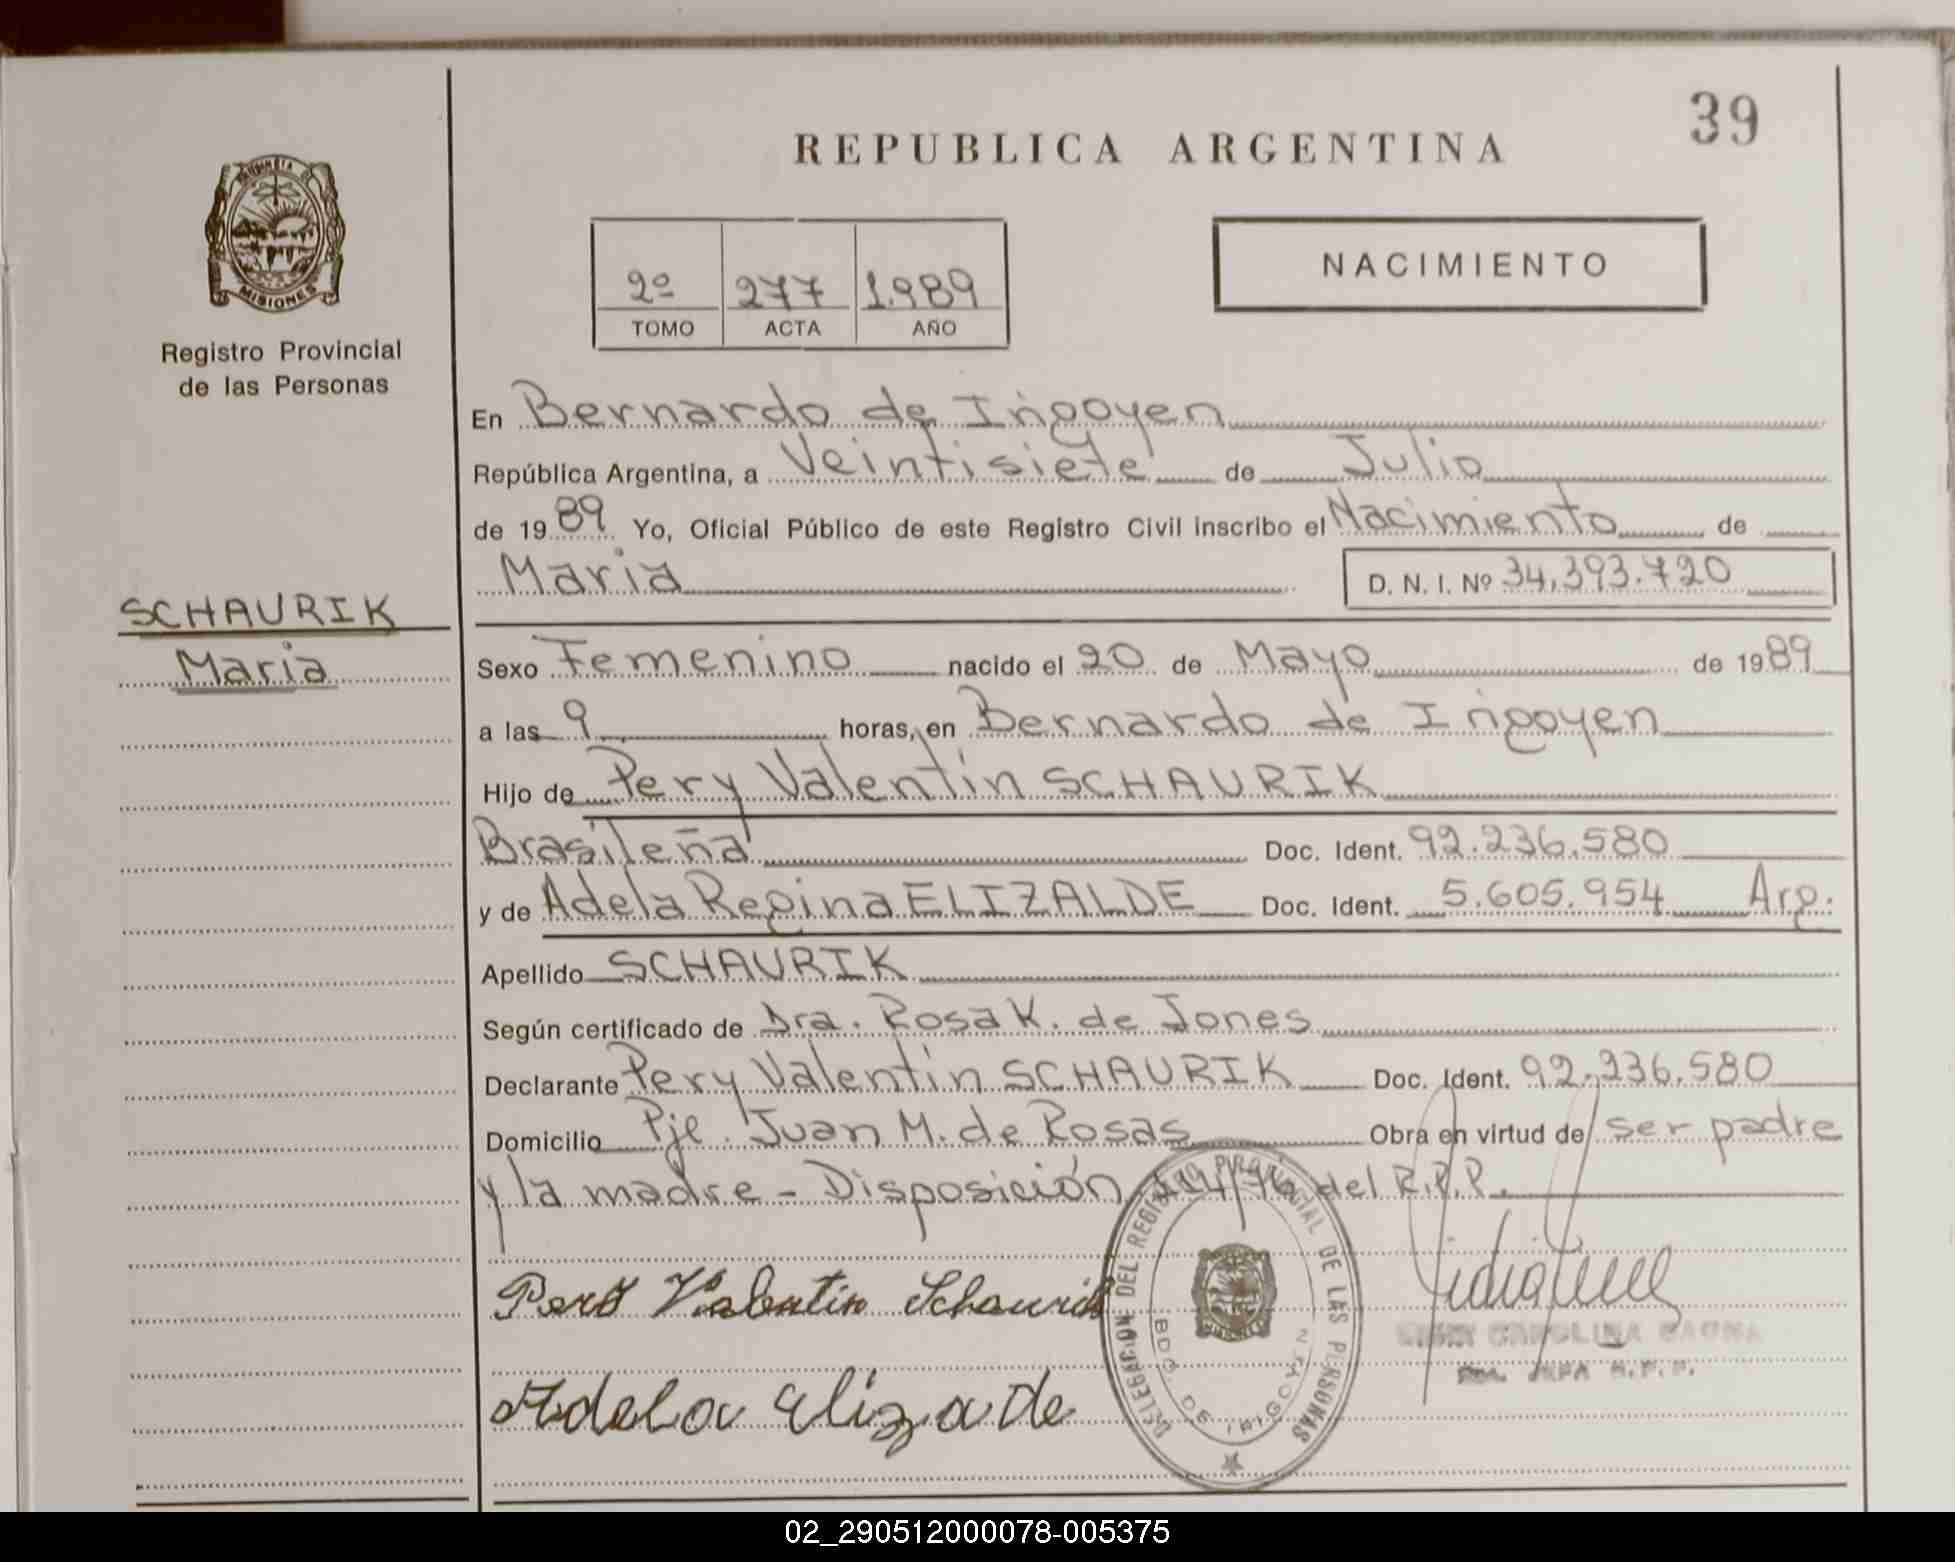 39
REPUBLICA ARGENTINA
MISIONES
Registro Provincial
de las Personas
2º 277 1.989
TOMO ACTA AÑO
NACIMIENTO
En Bernardo de Irigoyen
República Argentina, a Veintisiete de Julio
de 19 89 Yo, Oficial Público de este Registro Civil inscribo el Nacimiento de
Maria D. N. I. Nº 34.393.720
SCHAURIK
Maria
Sexo Femenino nacido el 20 de Mayo de 19 89
a las 9 horas, en Bernardo de Irigoyen
Hijo de Pery Valentin SCHAURIK
Brasileña Doc. Ident. 92.236.580
y de Adela Regina ELIZALDE Doc. Ident. 5.605.954 Arg.
Apellido SCHAURIK
Según certificado de Dra. Rosa K. de Jones
Declarante Pery Valentin SCHAURIK Doc. Ident. 92.236.580
Domicilio Pje. Juan M. de Rosas Obra en virtud de ser padre
y la madre - Disposición del R.P.P.
Pery Valentin Schaurik
Adela Elizade
DELEGACION DEL REGISTRO PROVINCIAL DE LAS PERSONAS
BDO. DE IRIGOYEN
CAROLINA
JEFA R.P.P.
02_290512000078-005375